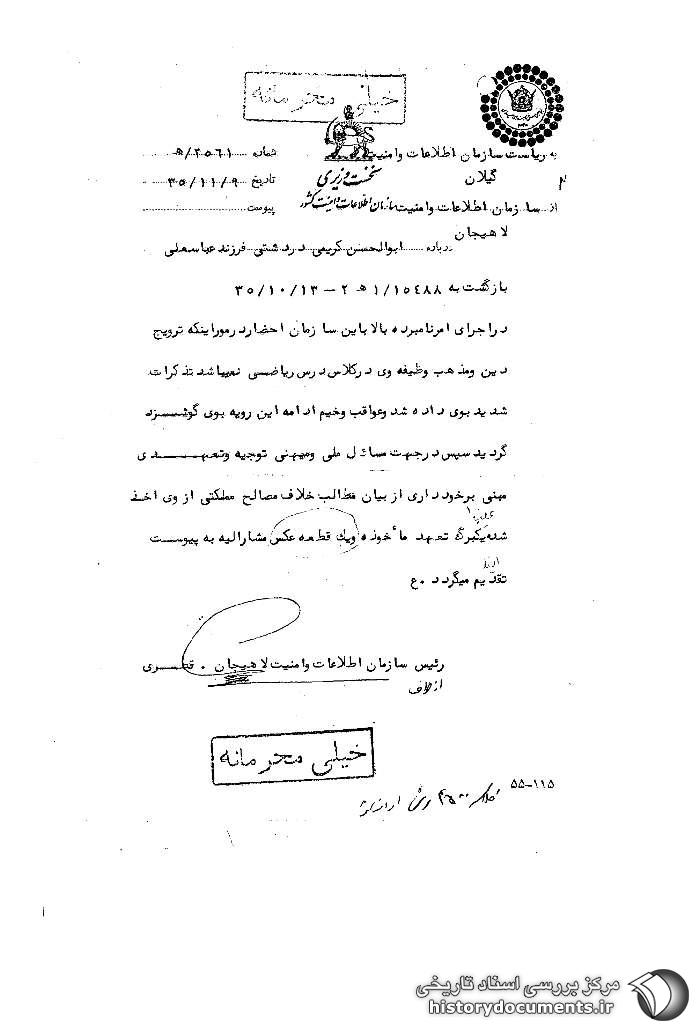 خیلی محرمانه
به ریاست سازمان اطلاعات وامنیت
شماره ه/۲۵۶۱
نخست وزیری
گیلان
تاریخ ۳۵/۱۱/۹
سازمان اطلاعات و امنیت کشور
از سازمان اطلاعات وامنیت
پیوست
لاهیجان
درباره ابوالحسن کریمی دردشتی فرزند عباسعلی
بازگشت به ۱/۱۵۴۸۸ ه ۲ – ۳۵/۱۰/۱۳
دراجرای امرنامبرده بالا باین سازمان احضارد رموراینکه ترویج
دین ومذهب وظیفه وی درکلاس درس ریاضی نمیباشد تذکرات
شدید بوی داده شد وعواقب وخیم ادامه این رویه بوی گوشزد
گردید سپس درجهت مسائل ملی ومیهنی توجیه وتعهدی
مبنی برخودداری از بیان مطالب خلاف مصالح مملکتی از وی اخذ
شده یکبرگ تعهد مأخوذه ویک قطعه عکس مشارالیه به پیوست
تقدیم میگردد . ع
رئیس سازمان اطلاعات وامنیت لاهیجان .
از طرف
خیلی محرمانه
۵۵-۱۱۵
مرکز بررسی اسناد تاریخی
historydocuments.ir